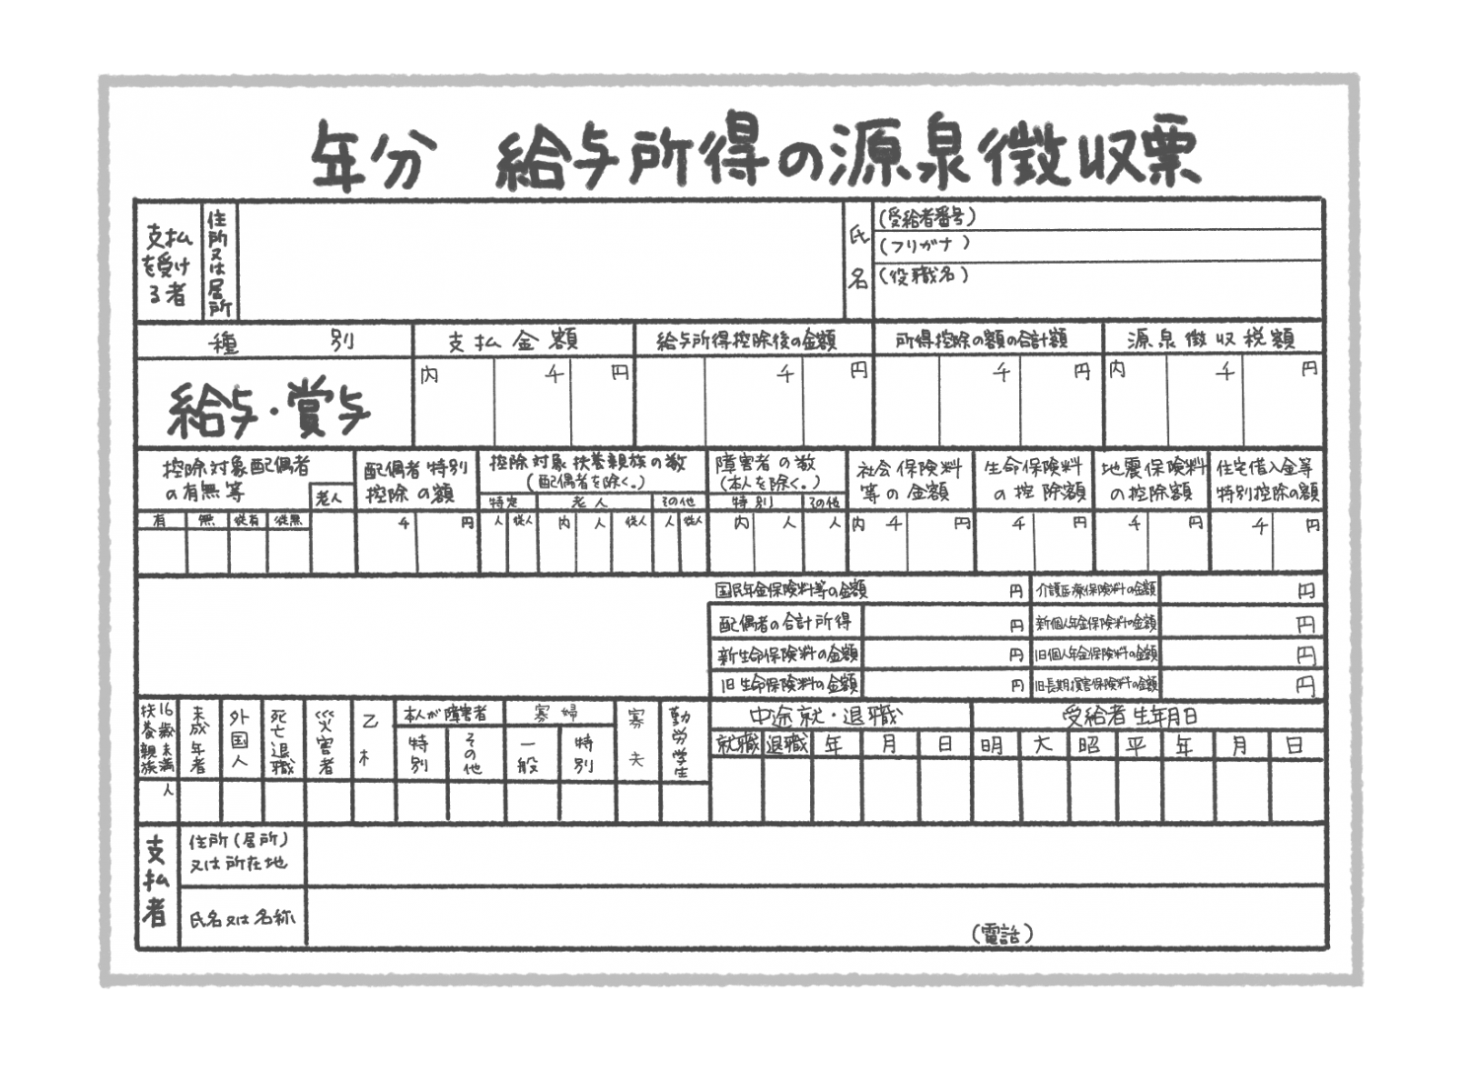 年分 給与所得の源泉徴収票
支払を受ける者
住所又は居所
氏名
(受給者番号)
(フリガナ)
(役職名)
種別
支払金額
給与所得控除後の金額
所得控除の額の合計額
源泉徴収税額
給与・賞与
内 千 円
千 円
千 円
内 千 円
控除対象配偶者の有無等
老人
有 無 従有 従無
配偶者特別控除の額
千 円
控除対象扶養親族の数
(配偶者を除く。)
特定 老人 その他
人 従人 内 人 従人 人 従人
障害者の数
(本人を除く。)
特別 その他
内 人 人
社会保険料等の金額
内 千 円
生命保険料の控除額
千 円
地震保険料の控除額
千 円
住宅借入金等特別控除の額
千 円
国民年金保険料等の金額 円
介護医療保険料の金額 円
配偶者の合計所得 円
新個人年金保険料の金額 円
新生命保険料の金額 円
旧個人年金保険料の金額 円
旧生命保険料の金額 円
旧長期損害保険料の金額 円
16歳未満扶養親族
人
未成年者
外国人
死亡退職
災害者
乙
本人が障害者
特別
その他
寡婦
一般
特別
寡夫
勤労学生
中途就・退職
就職 退職 年 月 日
受給者生年月日
明 大 昭 平 年 月 日
支払者
住所(居所)
又は所在地
氏名又は名称
(電話)